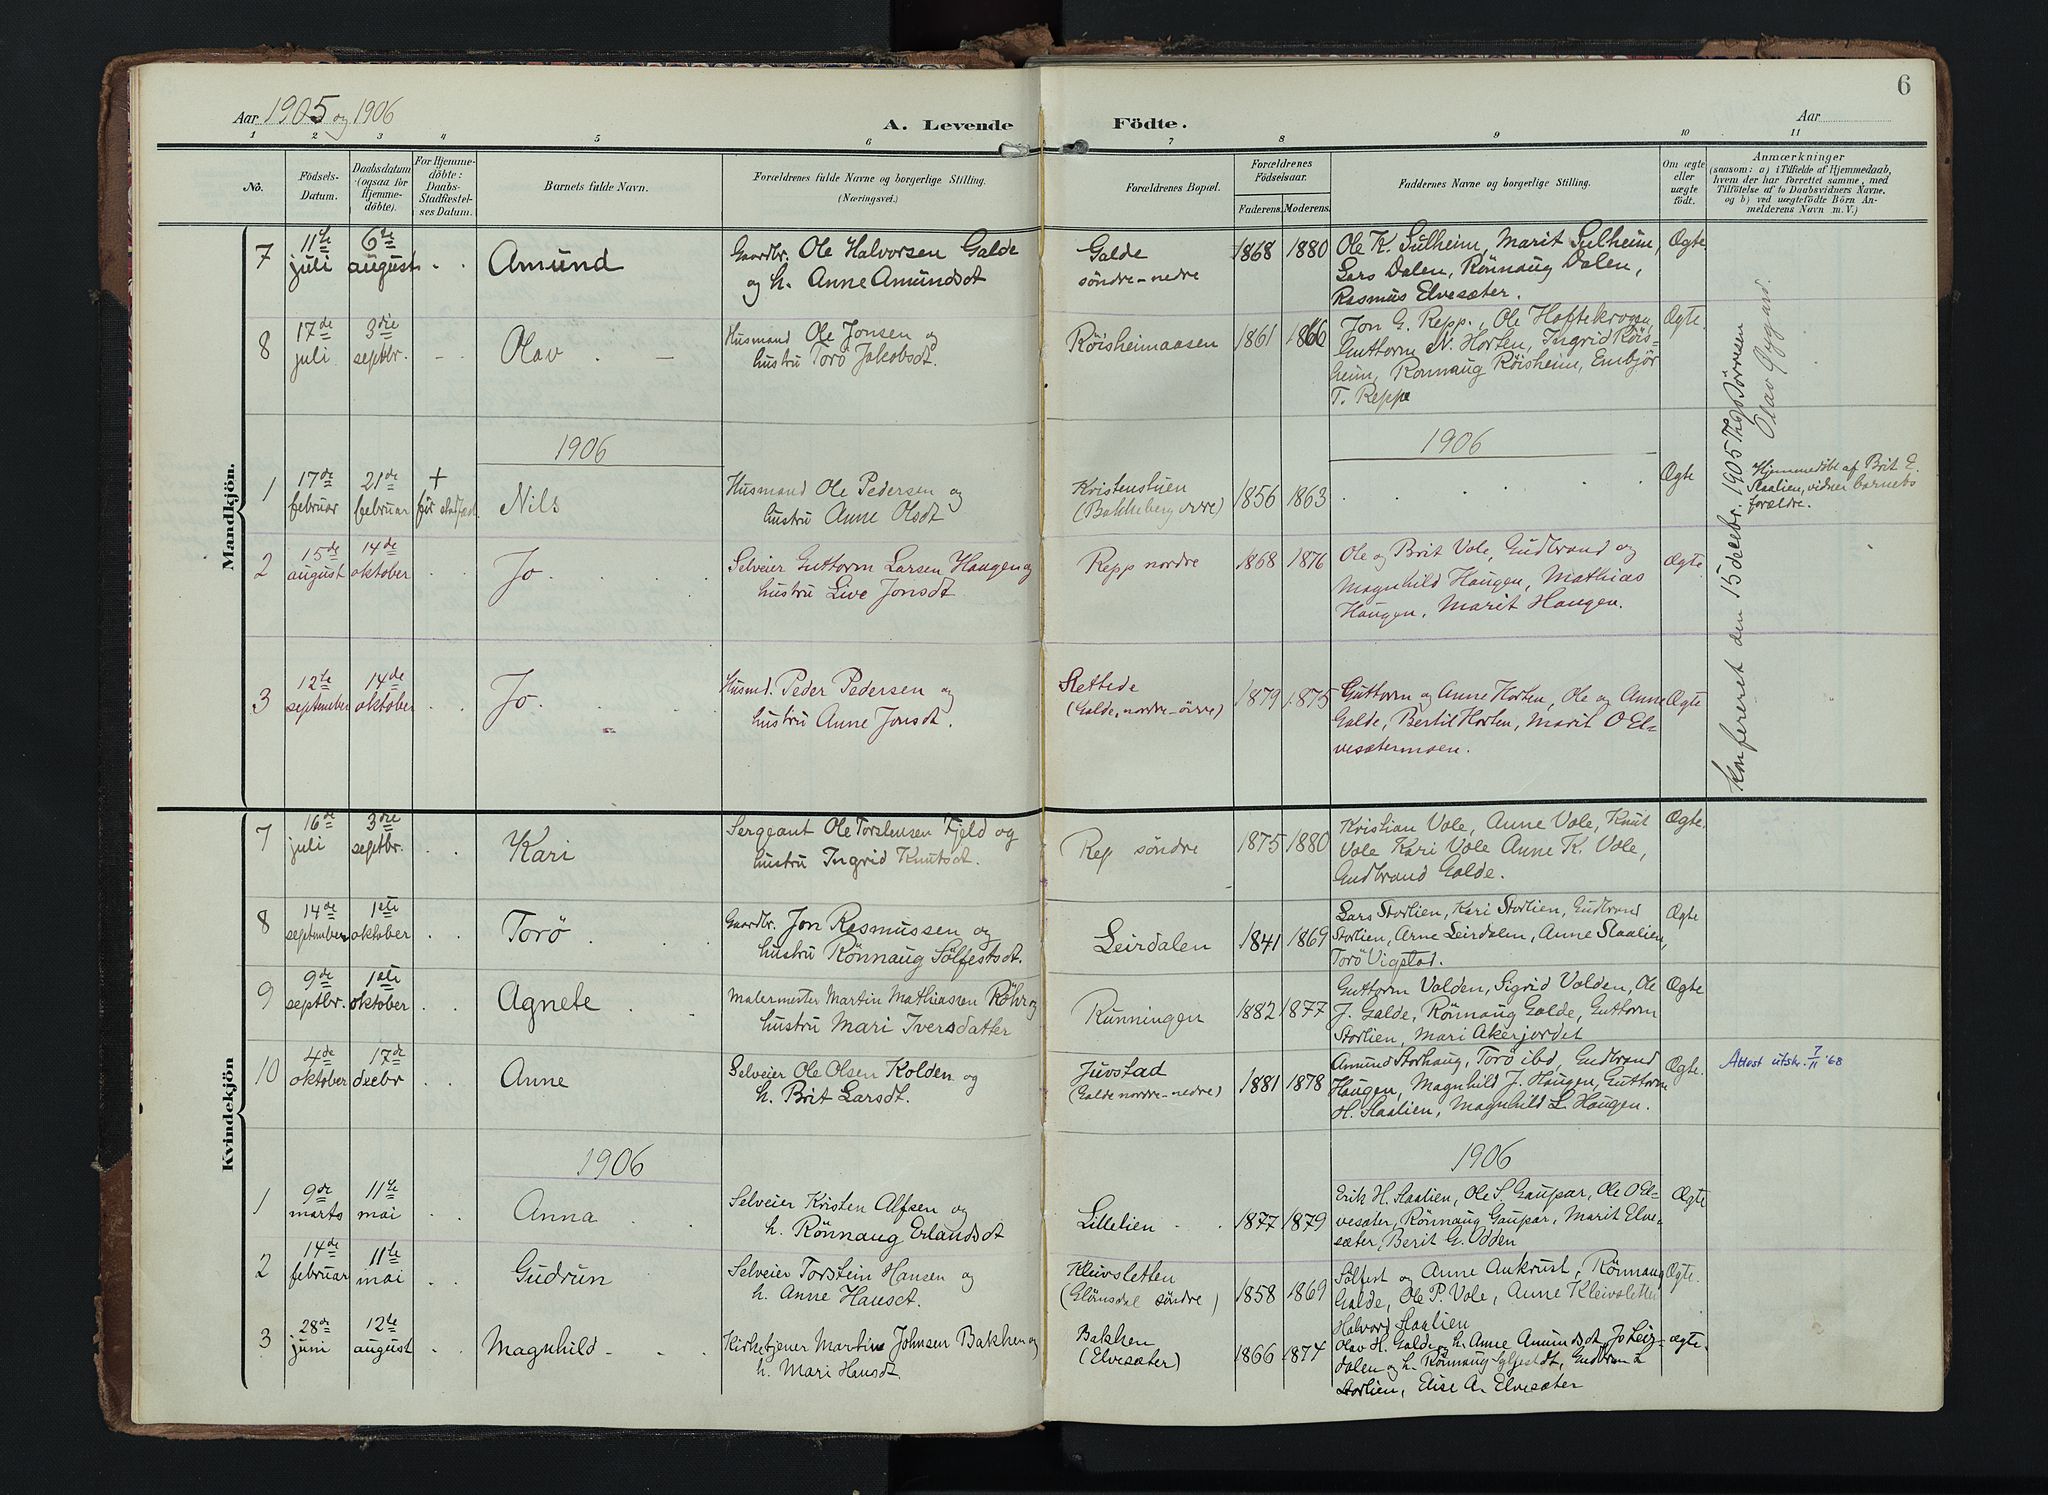 6
Aar 1905 og 1906
A. Levende Födte.
Aar
1 2 3 4 5 6 7 8 9 10 11
No.
Födsels-
Datum.
Daabsdatum
(ogsaa for
Hjemme-
döbte).
For Hjemme-
döbte:
Daabs-
Stadfæstel-
ses Datum.
Barnets fulde Navn.
Forældrenes fulde Navne og borgerlige Stilling.
(Næringsvei.)
Forældrenes Bopæl.
Forældrenes
Födselsaar.
Faderens. Moderens.
Faddernes Navne og borgerlige Stilling.
Om ægte
eller
uægte
födt.
Anmærkninger
(saasom: a) i Tilfælde af Hjemmedaab,
hvem der har forrettet samme, med
Tilföielse af to Daabsvidners Navne,
og b) ved uægtefödte Börn An-
melderens Navn m. V.)
Mandkjön.
7
11te
juli
6te
august
Amund
Gaardbr. Ole Halvorsen Galde
og h. Anne Amundsdt
Galde
söndre-nedre
1868 1880
Ole K. Sulheim, Marit Sulheim,
Lars Dalen, Rönnaug Dalen,
Rasmus Elvesæter.
Ægte
8
17de
juli
3die
septbr.
Olav
Husmand Ole Jonsen og
hustru Torö Jakobsdt.
Röisheimaasen
1861 1866
Jon G. Repp., Ole Haftekrogen,
Guttorm N. Horten, Ingrid Röis-
heim, Ronnaug Röisheim, Embjör
T. Reppe
Ægte.
1906
1906
1
17de
februar
21de
februar
+
för stadfæst
Nils
Husmand Ole Pedersen og
hustru Anne Olsdt
Kristenstuen
(Bakkeberg övre)
1856 1863
Ægte
Hjemmedöbt af Brit E.
Slaalien, vidner barnets
forældre.
2
15de
august
14de
oktober
Jo
Selveier Guttorm Larsen Haugen og
hustru Live Jonsdt.
Repp nordre
1868 1876
Ole og Brit Vole, Gudbrand og
Magnhild Haugen, Mathias
Haugen, Marit Haugen.
Ægte.
3
12te
september
14de
oktober
Jo.
Husmd. Peder Pedersen og
hustru Anne Jonsdt.
Slettede
(Galde, nordre-övre)
1879 1875
Guttorm og Anne Horten, Ole og Anne
Galde, Bertil Horten, Marit O El-
vesætermoen.
Ægte
Konfereret den 15 decbr. 1905
Olav Bygard.
Kvindekjön
7
16de
juli
3die
septbr.
Kari
Sergeant Ole Torstensen Fjeld og
hustru Ingrid Knutsdt.
Rep söndre
1875 1880
Kristian Vole, Anne Vole, Knut
Vole Kari Vole Anne K. Vole,
Gudbrand Galde.
Ægte.
8
14de
september
1ste
oktober
Torö
Gaardbr. Jon Rasmussen og
hustru Rönnaug Sölfestsdt.
Leirdalen
1841 1869
Lars Storlien, Kari Storlien, Gudbrand
Storlien, Arne Leirdalen, Anne Slaalien,
Torö Vigstad.
Ægte
9
9de
septbr.
1ste
oktober
Agnete
Malermester Martin Mathiassen Röhr og
hustru Mari Iversdatter
Runningen
1882 1877
Guttorm Volden, Sigrid Volden, Ole
J. Galde, Rönnaug Galde, Guttorm
Storlien, Mari Akerjordet
Ægte
10
4de
oktober
17de
decbr
Anne
Selveier Ole Olsen Kolden og
h. Brit Larsdt.
Juvstad
(Galde nordre-nedre)
1881 1878
Amund Storhaug, Torö ibd, Gudbrand
Haugen, Magnhild J. Haugen, Guttorm
H. Slaalien, Magnhild L. Haugen.
Ægte.
Attest utsk. 7/11 '68
1906
1906
1
9de
marts
11te
mai
Anna
Selveier Kristen Alfsen og
h. Rönnaug Erlandsdt
Lillelien
1877 1879
Erik H. Slaalien, Ole S. Gaupar, Ole O El-
vesæter, Rönnaug Gaupar, Marit Elve-
sæter, Berit G. Odden
Ægte
2
14de
februar
11te
mai
Gudrun
Selveier Torstein Hansen og
h. Anne Hansdt.
Kleivsletten
(Glömsdal söndre)
1858 1869
Sölfest og Anne Aukrust, Rönnaug
Galde, Ole P. Vole, Anne Kleivsletten
Halvord Slaalien
Ægte.
3
28de
juni
12te
august
Magnhild
Kirketjener Martin Johnsen Bakken og
h. Mari Hansdt.
Bakken
(Elvesæter)
1866 1874
Olav H. Galde og h. Anne Amundsdt, Jo Leir-
dalen og h. Rönnaug Sylfestdt, Gudbran L
Storlien, Elise A. Elvesæter
ægte.